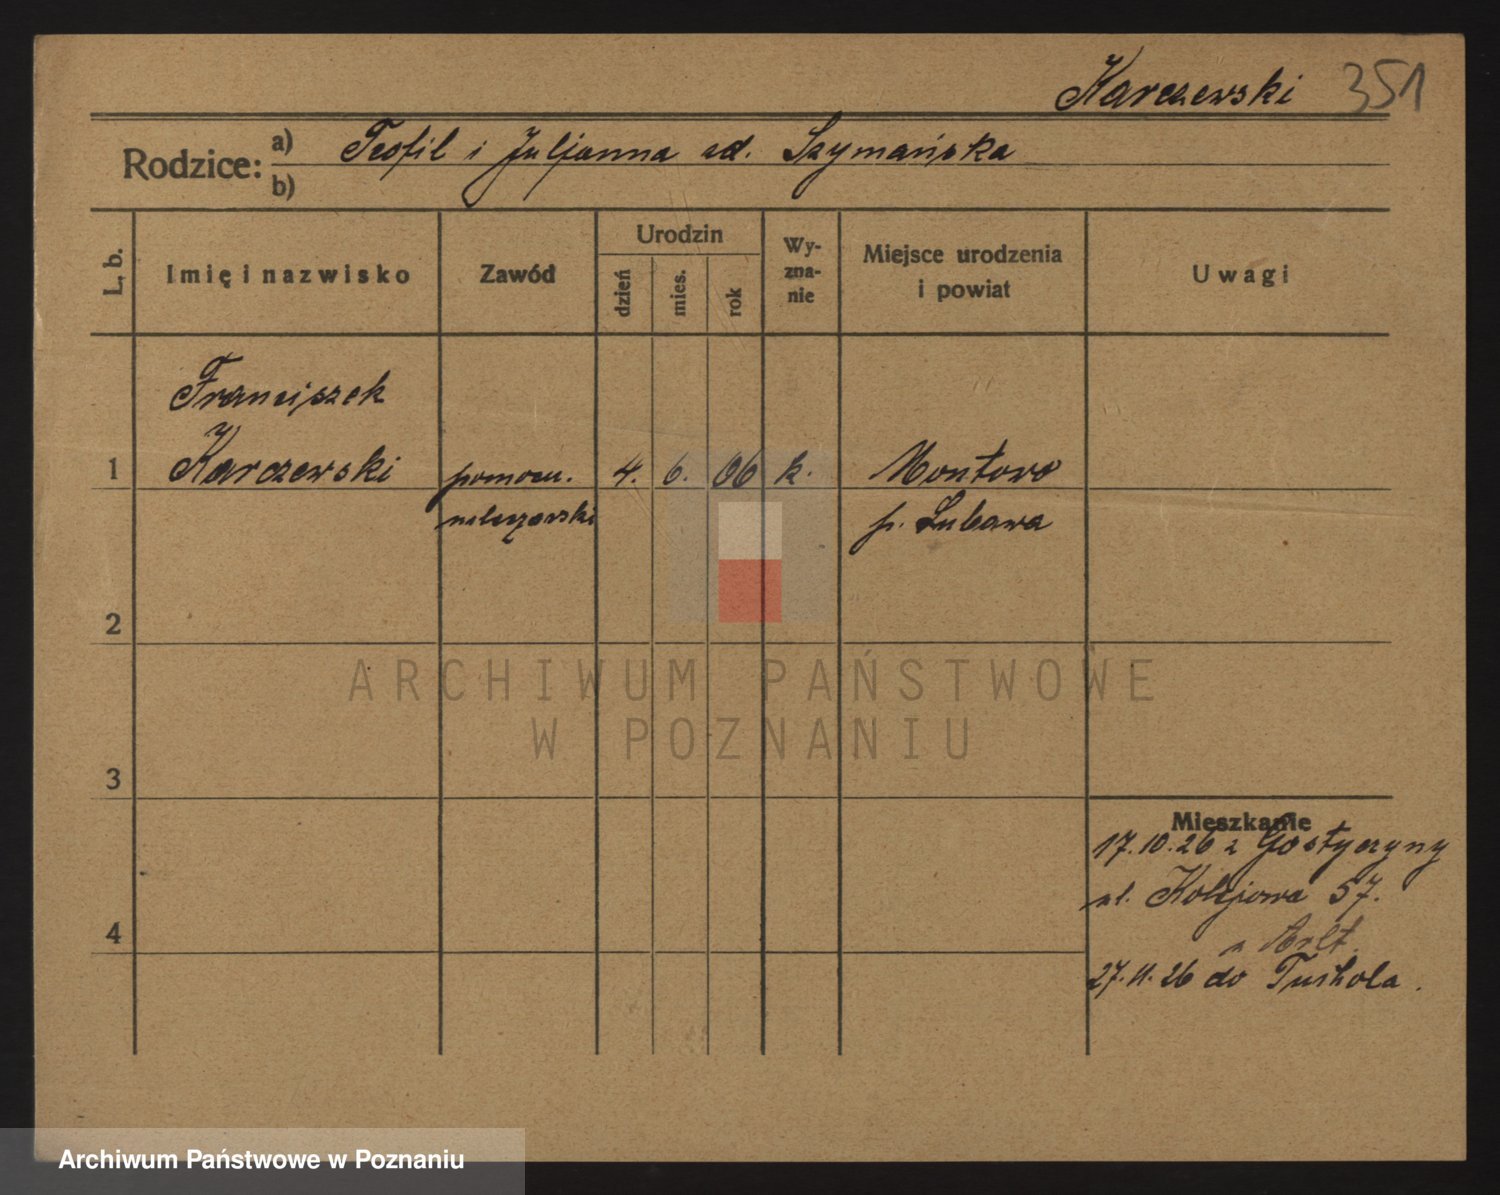 Karczewski 351
Rodzice: a) Teofil i Juljanna zd. Szymańska
b)
L. b.
Imię i nazwisko
Zawód
Urodzin
dzień
mies.
rok
Wy-
zna-
nie
Miejsce urodzenia
i powiat
Uwagi
Franciszek
1 Karczewski pomocn. 4. 6. 06 k. Montowo
mleczarski p. Lubawa
2
3
4
Mieszkanie
17.10.26 z Gostyczyny
ul. Kolejowa 57.
u Arlt
27.11.26 do Tuchola.
ARCHIWUM PAŃSTWOWE
W POZNANIU
Archiwum Państwowe w Poznaniu